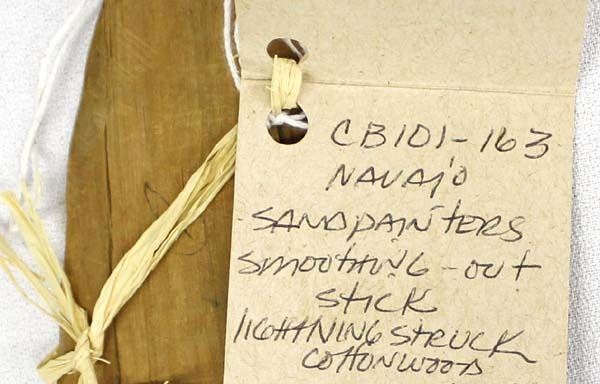 CB101-163
NAVAJO
SANDPAINTERS
SMOOTHING-OUT
STICK
LIGHTNING STRUCK
COTTONWOOD